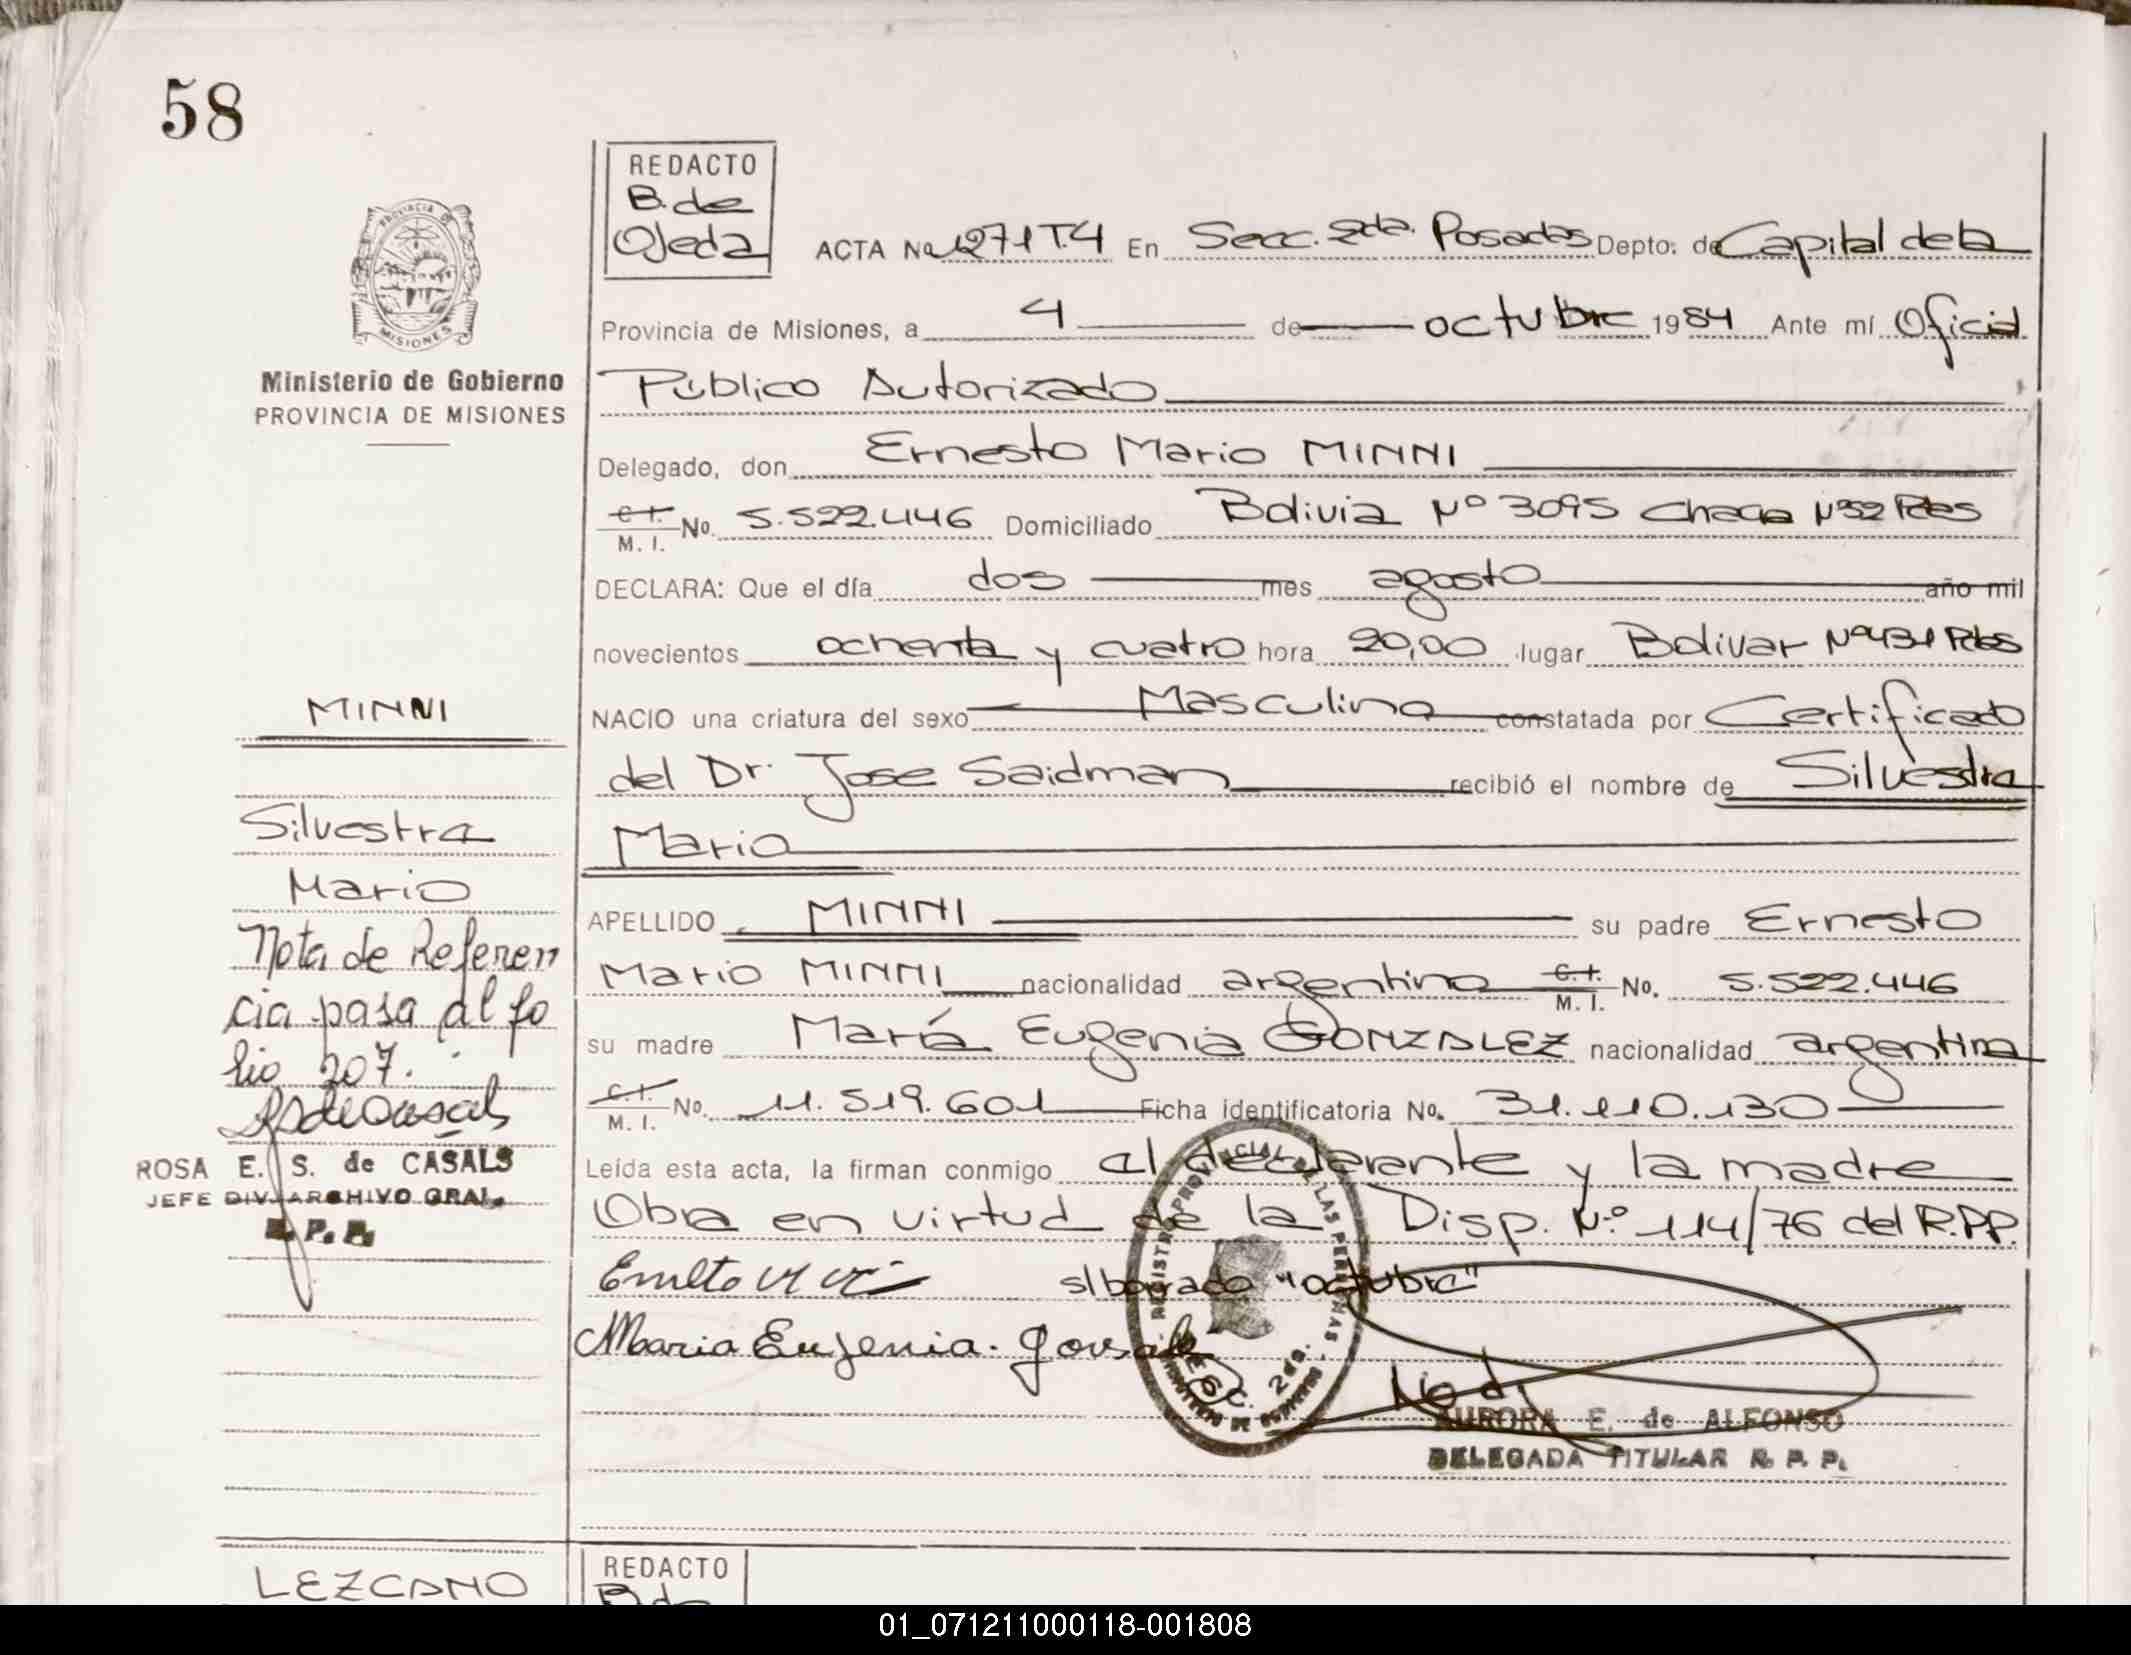 58
REDACTO
B. de
Ojeda
ACTA No 1271 T.4 En Secc. 2da. Posadas Depto. de Capital de la
Provincia de Misiones, a 4 de octubre 1984 Ante mí Oficial
Ministerio de Gobierno
PROVINCIA DE MISIONES
Público Autorizado
Delegado, don Ernesto Mario MINNI
C.I. M. I. No. 5.522.446 Domiciliado Bolivia Nº 3095 Chacra Nº 32 Pdas
DECLARA: Que el día dos mes agosto año mil
novecientos ochenta y cuatro hora 20,00 lugar Bolivar Nº 431 Pdas
MINNI
NACIO una criatura del sexo Masculino constatada por Certificado
del Dr. Jose Saidman recibió el nombre de Silvestra
Silvestra
Mario
Mario
APELLIDO MINNI su padre Ernesto
Nota de Referen
Mario MINNI nacionalidad argentina C.I. M. I. No. 5.522.446
cia pasa al fo
su madre María Eugenia GONZALEZ nacionalidad argentina
lio 207.
C.I. M. I. No. 11.519.601 Ficha identificatoria No. 31.110.130
ROSA E. S. de CASALS
JEFE DIV. ARCHIVO GRAL.
R. P. P.
Leída esta acta, la firman conmigo el declarante y la madre
Obra en virtud de la Disp. N.º 114/76 del R.P.P.
s/borrado "octubre"
Maria Eugenia. Gonzalez
REGISTRO PROVINCIAL DE LAS PERSONAS
SEC. 2da.
AURORA E. de ALFONSO
DELEGADA TITULAR R. P. P.
LEZCANO
REDACTO
B. de
01_071211000118-001808